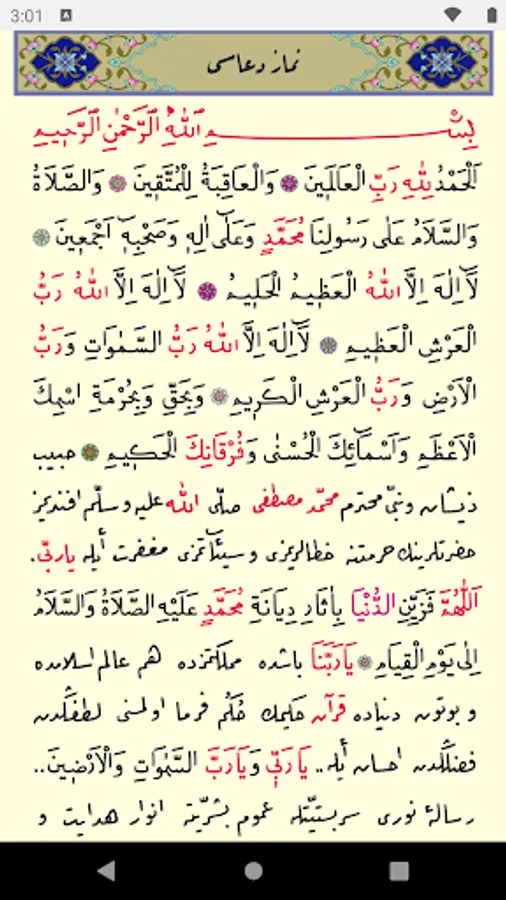 3:01
نماز دعاسی
بِسْــــــمِ اللّٰهِ الرَّحْمٰنِ الرَّحٖيمِ
اَلْحَمْدُ لِلّٰهِ رَبِّ الْعَالَمٖينَ ۞ وَالْعَاقِبَةُ لِلْمُتَّقٖينَ ۞ وَالصَّلَاةُ
وَالسَّلَامُ عَلٰى رَسُولِنَا مُحَمَّدٍ وَعَلٰٓى اٰلِهٖ وَصَحْبِهٖٓ اَجْمَعٖينَ ۞
لَٓا اِلٰهَ اِلَّا اللّٰهُ الْعَظٖيمُ الْحَلٖيمُ ۞ لَٓا اِلٰهَ اِلَّا اللّٰهُ رَبُّ
الْعَرْشِ الْعَظٖيمِ ۞ لَٓا اِلٰهَ اِلَّا اللّٰهُ رَبُّ السَّمٰوَاتِ وَرَبُّ
الْاَرْضِ وَرَبُّ الْعَرْشِ الْكَرٖيمِ ۞ وَبِحَقِّ وَبِحُرْمَةِ اسْمِكَ
الْاَعْظَمِ وَاَسْمَٓائِكَ الْحُسْنٰى وَفُرْقَانِكَ الْحَكٖيمِ ۞ حبيب
ذيشان ونبئ محترم محمّد مصطفى صلّى اللّٰه عليه وسلّم افنديمز
حضرتلرينك حرمتنه خطالريمزى وسيّئاتمزى مغفرت أيله ياربّى.
اَللّٰهُمَّ فَزَيِّنِ الدُّنْيَا بِاٰثَارِ دِيَانَةِ مُحَمَّدٍ عَلَيْهِ الصَّلَاةُ وَالسَّلَامُ
اِلٰى يَوْمِ الْقِيَامِ ۞ يَارَبَّنَا باشده مملكتمزده هم عالم اسلامده
و بوتون دنياده قرآن حكيمك حُكْم فرما اولمسنى لطفڭدن
فضلڭدن احسان أيله.. يَارَبّٖى وَيَارَبَّ السَّمٰوَاتِ وَالْاَرَضٖينَ..
رسالهٔ نورى سربستيتله عموم بشريّته انوار هدايت و